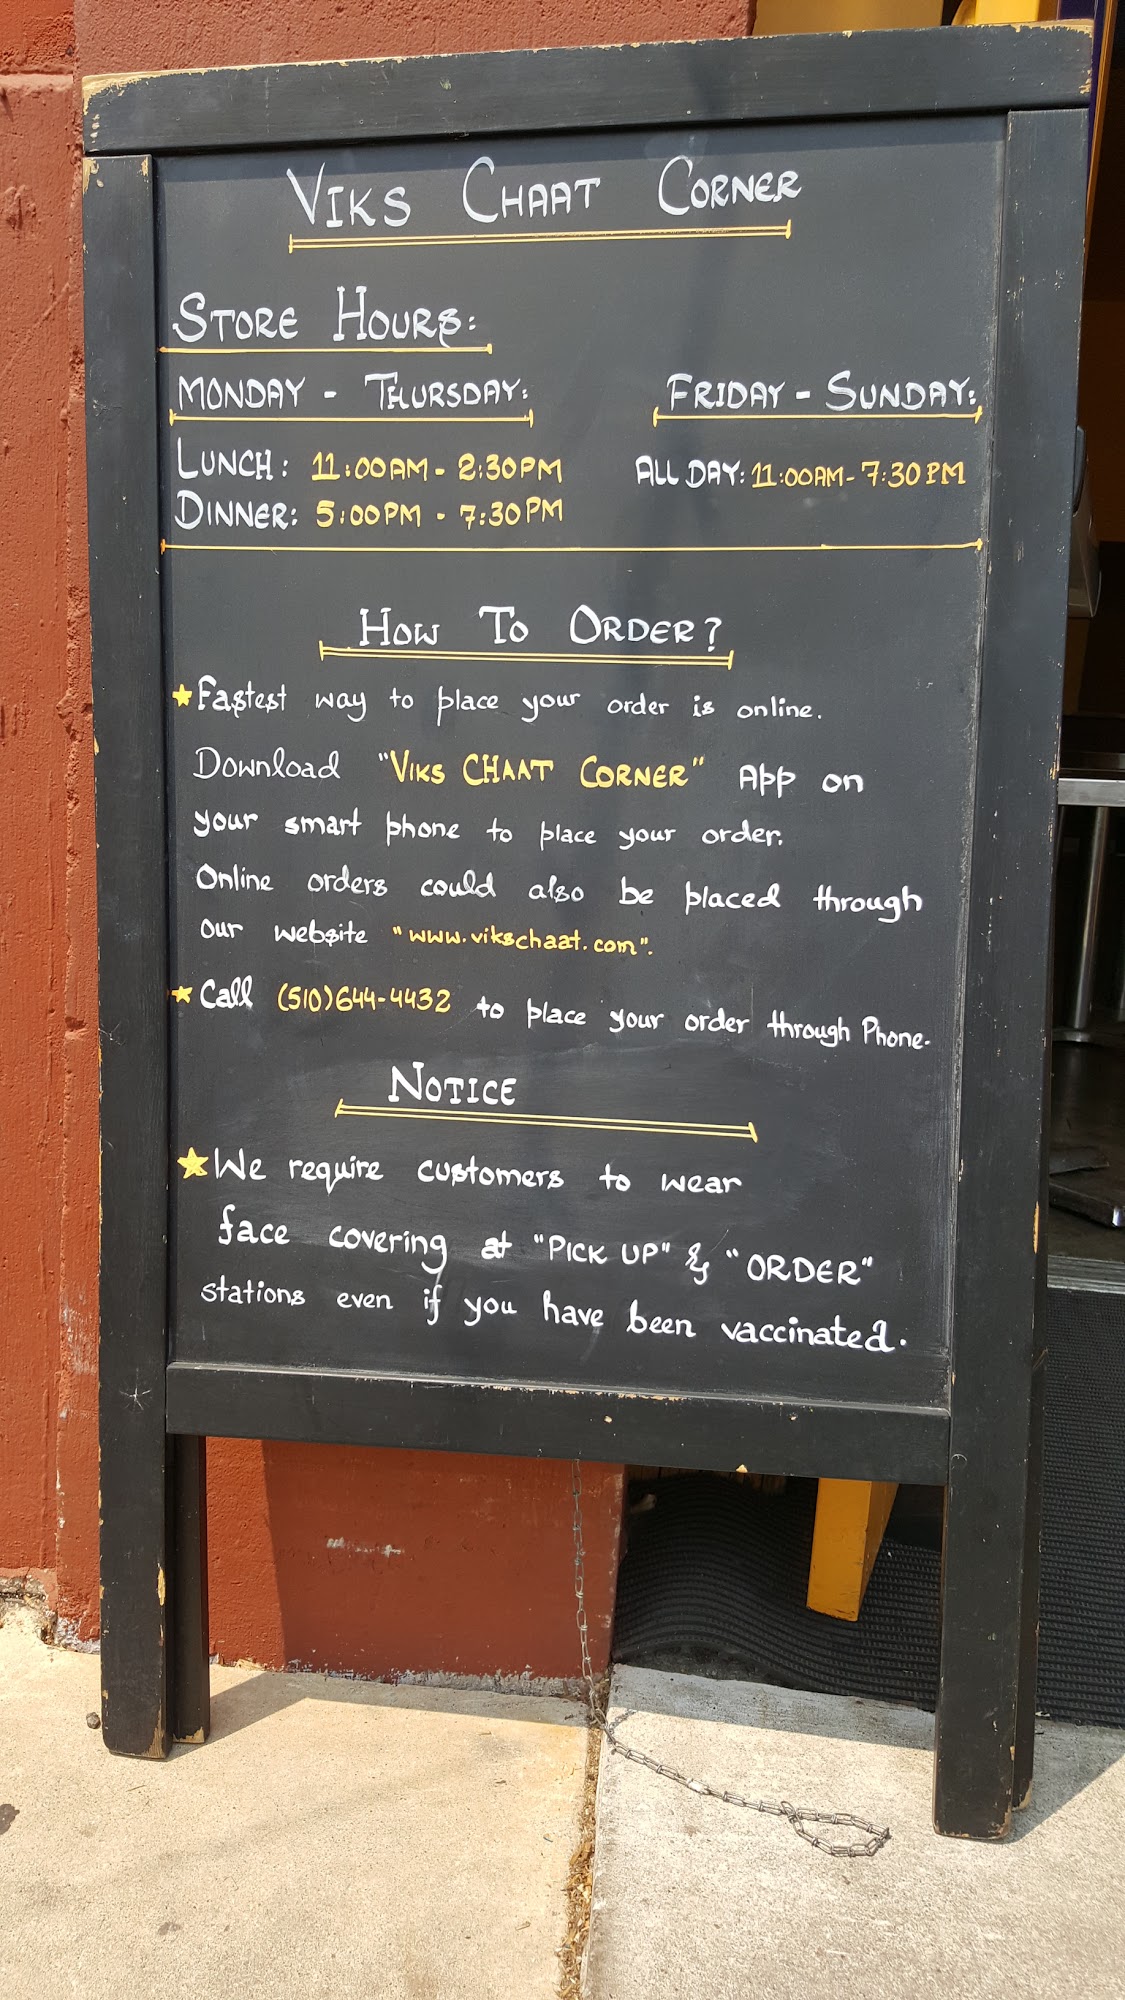 VIKS CHAAT CORNER
STORE HOURS:
MONDAY - THURSDAY:
LUNCH: 11:00AM - 2:30PM
DINNER: 5:00PM - 7:30PM
FRIDAY - SUNDAY:
ALL DAY: 11:00AM - 7:30PM
HOW TO ORDER?
★ Fastest way to place your order is online.
Download "VIKS CHAAT CORNER" App on
your smart phone to place your order.
Online orders could also be placed through
our website "www.vikschaat.com".
★ Call (510)644-4432 to place your order through Phone.
NOTICE
★ We require customers to wear
face covering at "PICK UP" & "ORDER"
stations even if you have been vaccinated.